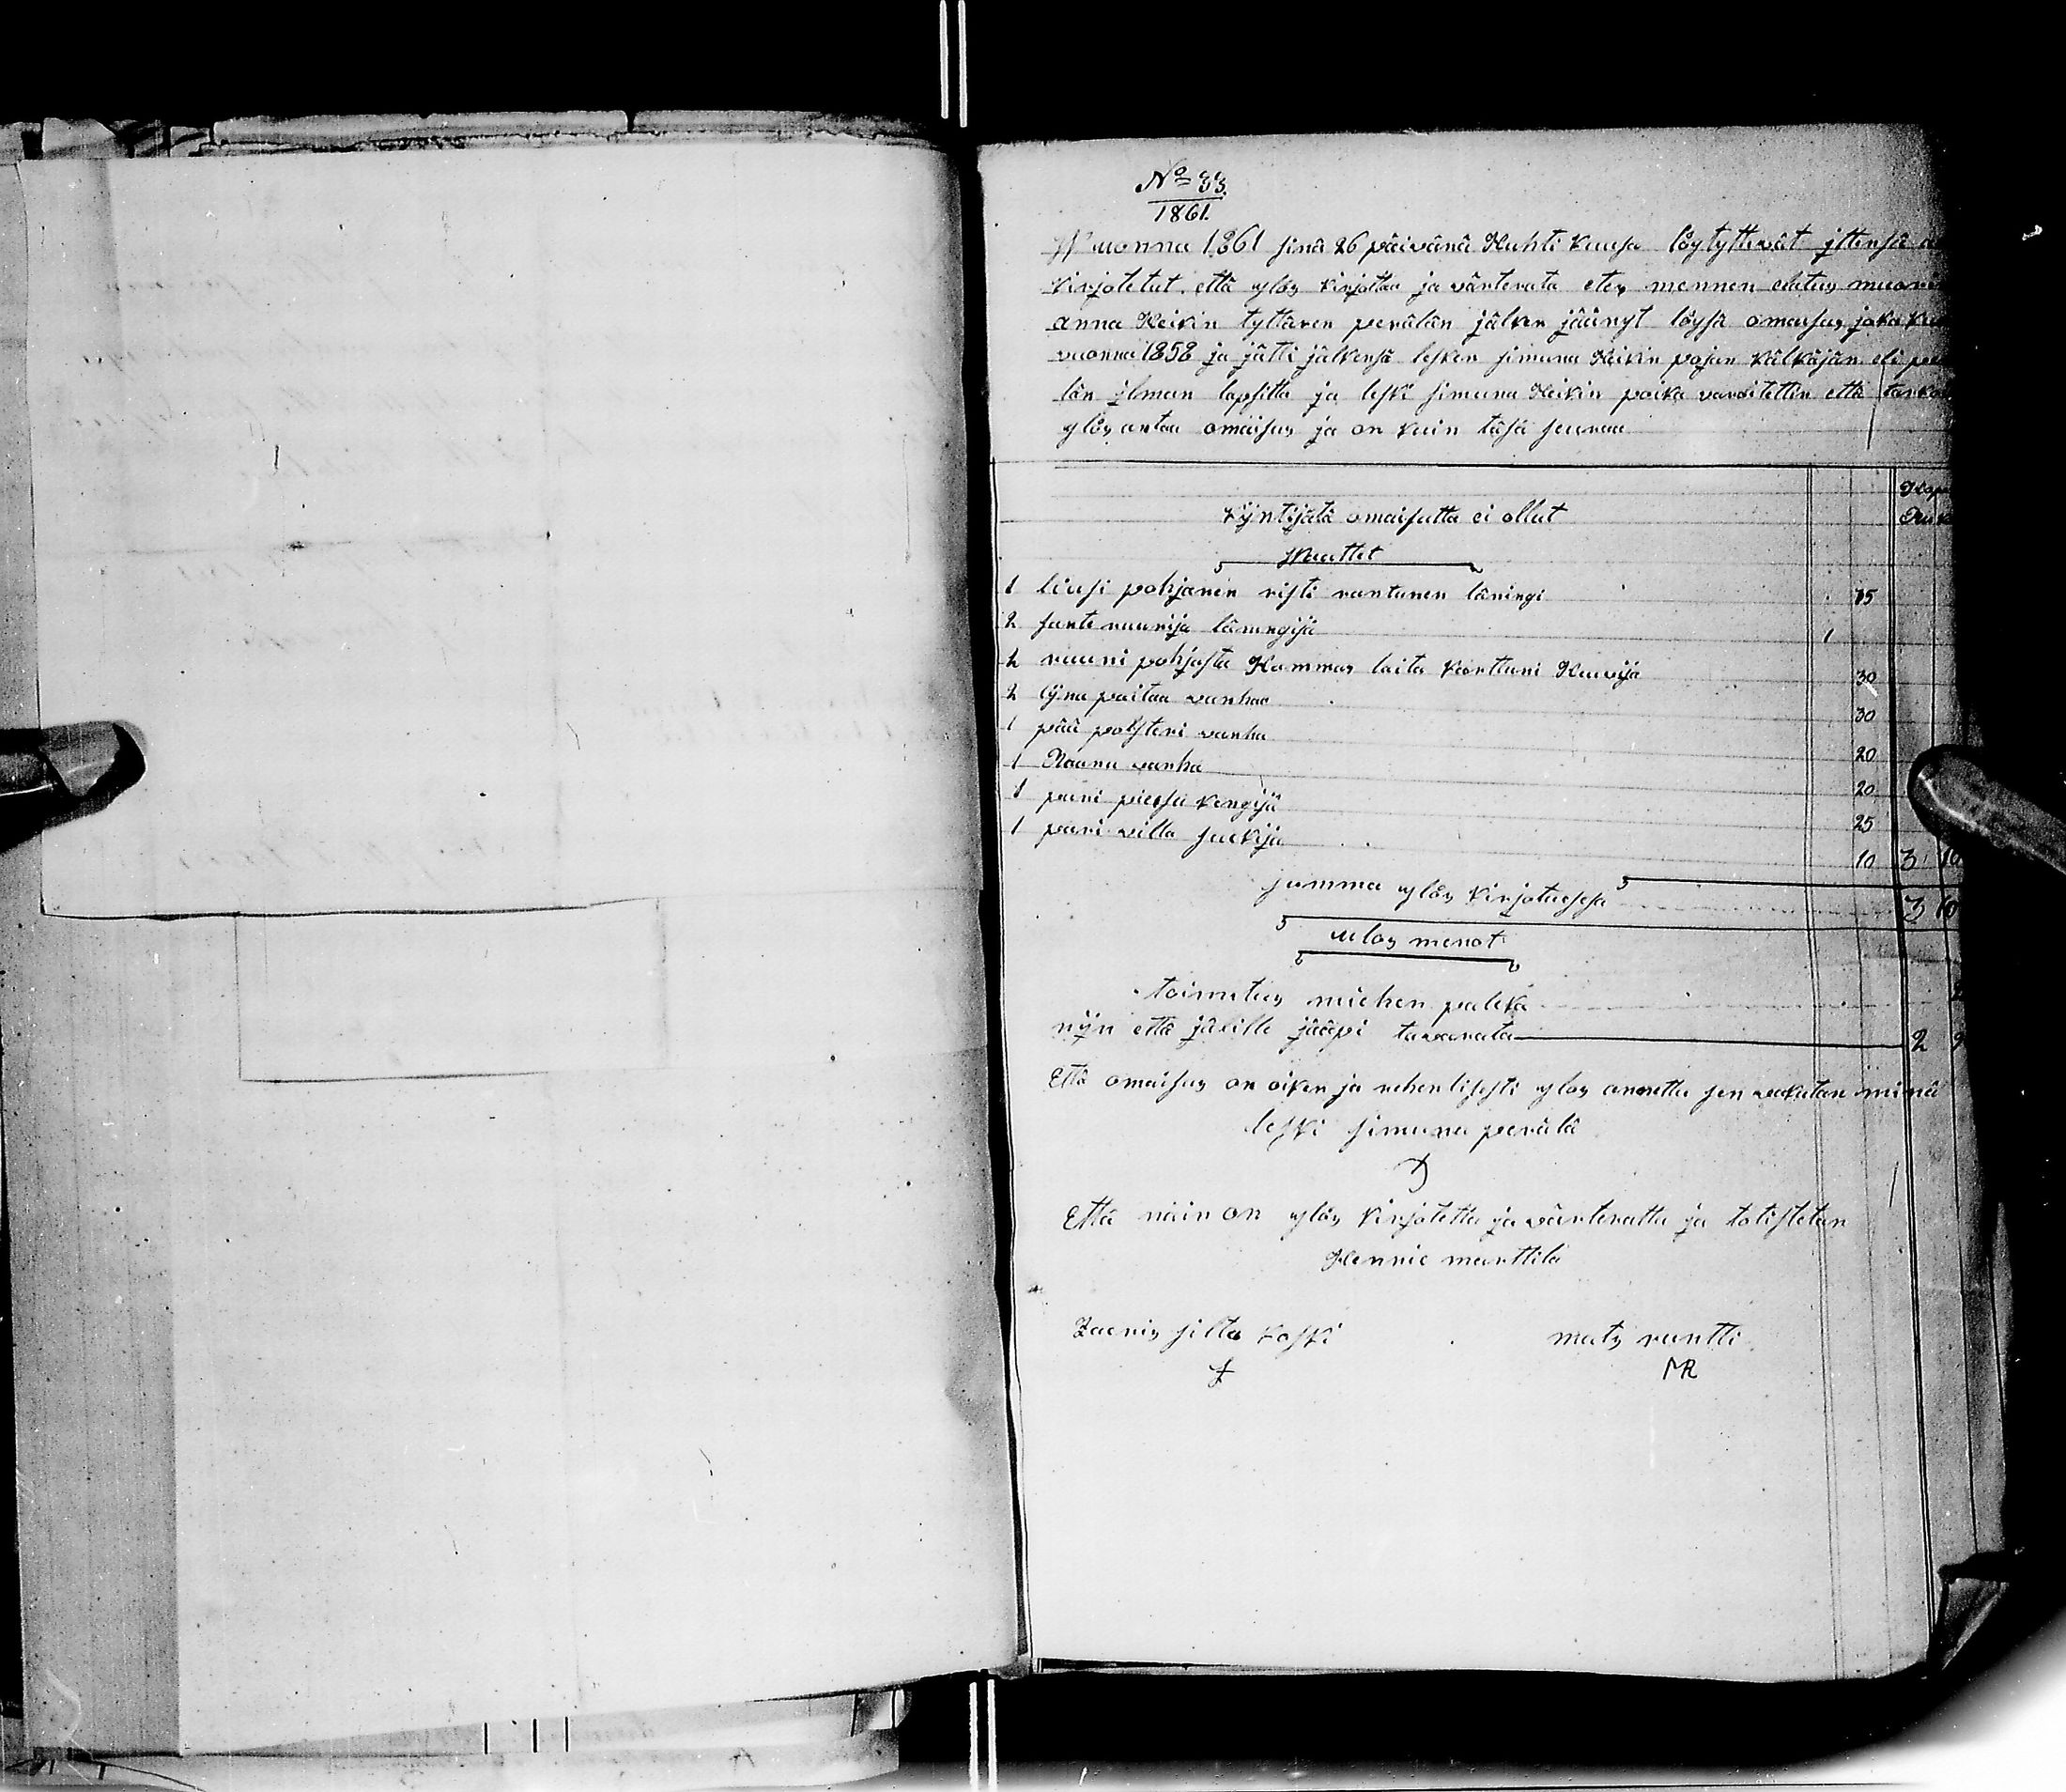 No 33.
1861.
Wuonna 1861 sinä 26 päivänä Huhti kuusa löytyttewät ittensä
kirjotetut. että ylös kirjottaa ja värterata etes mennen elatus muori
anna Heikin tyttären perälän jälken jäänyt löysä omaisus joka
vuonna 1858 ja jätti jälkensä lesken simuna Heikin pojan kälkäjän eli
län ilman lapsitta ja leski simuna Heikin poika varoitettin että
ylös antaa omaisus ja on kuin täsä seuraa
kijntijätä omaisutta ei ollut
Waattet
1 liusi pohjanen risti rantanen läningi 75
2 sante ruunija läningijä 1
2 ruuni pohjasta Hammas laita karttuni Huivija 30
2 lijna paitaa vanhaa 30
1 pää polsteri vanha 20
1 Raanu vanha 20
1 paari pieksu kengijä 25
1 paari villa sukija 10 3 10
summa ylös kirjotuksesa 3 10
ulos menot
toimitus miehen palkka
nijn että jäville jääpi tavarata 2
Että omaisus on oiken ja rehenlisesti ylös annettu sen vakutan minä
leski simuna perälä
Että näin on ylös kirjotettu ja värterattu ja totistetan
Hennic marttila
Zacris silta koski
mats rantti
MR